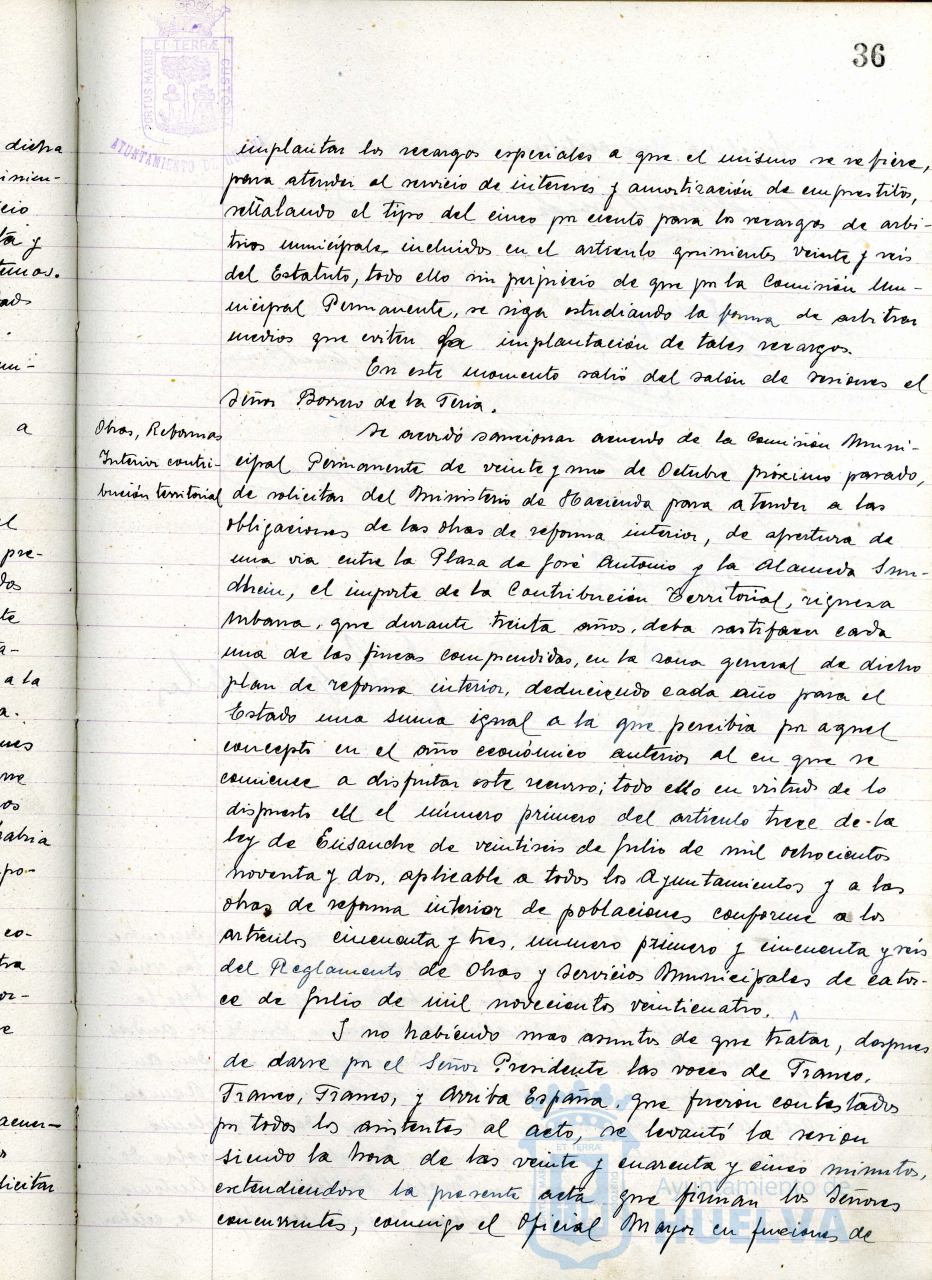 36
PORTUS MARIS ET TERRÆ CUSTODIA
AYUNTAMIENTO DE
implantar los recargos especiales a que el mismo se refiere,
para atender al servicio de intereses y amortización de emprestitos,
señalando el tipo del cinco por ciento para los recargos de arbi-
trios municipales incluidos en el articulo quinientos veinte y seis
del Estatuto, todo ello sin perjuicio de que por la Comisión Mu-
nicipal Permanente, se siga estudiando la forma de arbitrar
medios que eviten la implantación de tales recargos.
En este momento salió del salón de sesiones el
Señor Borrero de la Feria.
Obras, Reformas
Interior contri-
bución territorial
Se acordó sancionar acuerdo de la Comisión Muni-
cipal Permanente de veinte y uno de Octubre próximo pasado,
de solicitar del Ministerio de Hacienda para atender a las
obligaciones de las obras de reforma interior, de apertura de
una via entre la Plaza de José Antonio y la Alameda Sun-
dheim, el importe de la Contribución Territorial, riqueza
urbana, que durante treinta años, deba sastifacer cada
una de las fincas comprendidas, en la zona general de dicho
plan de reforma interior, deduciendo cada año para el
Estado una suma igual a la que percibia por aquel
concepto en el año económico anterior al en que se
comience a disfrutar este recurso; todo ello en virtud de lo
dispuesto en el número primero del articulo trece de la
ley de Ensanche de veintiseis de Julio de mil ochocientos
noventa y dos, aplicable a todos los Ayuntamientos y a las
obras de reforma interior de poblaciones conforme a los
articulos cincuenta y tres, numero primero y cincuenta y seis
del Reglamento de Obras y Servicios Municipales de cator-
ce de Julio de mil novecientos veinticuatro.
Y no habiendo mas asuntos de que tratar, despues
de darse por el Señor Presidente las voces de Franco,
Franco, Franco, y Arriba España, que fueron contestados
por todos los asistentes al acto, se levantó la sesion
siendo la hora de las veinte y cuarenta y cinco minutos,
extendiendose la presente acta que firman los Señores
concurrentes, conmigo el Oficial Mayor en funciones de
Ayuntamiento de
HUELVA